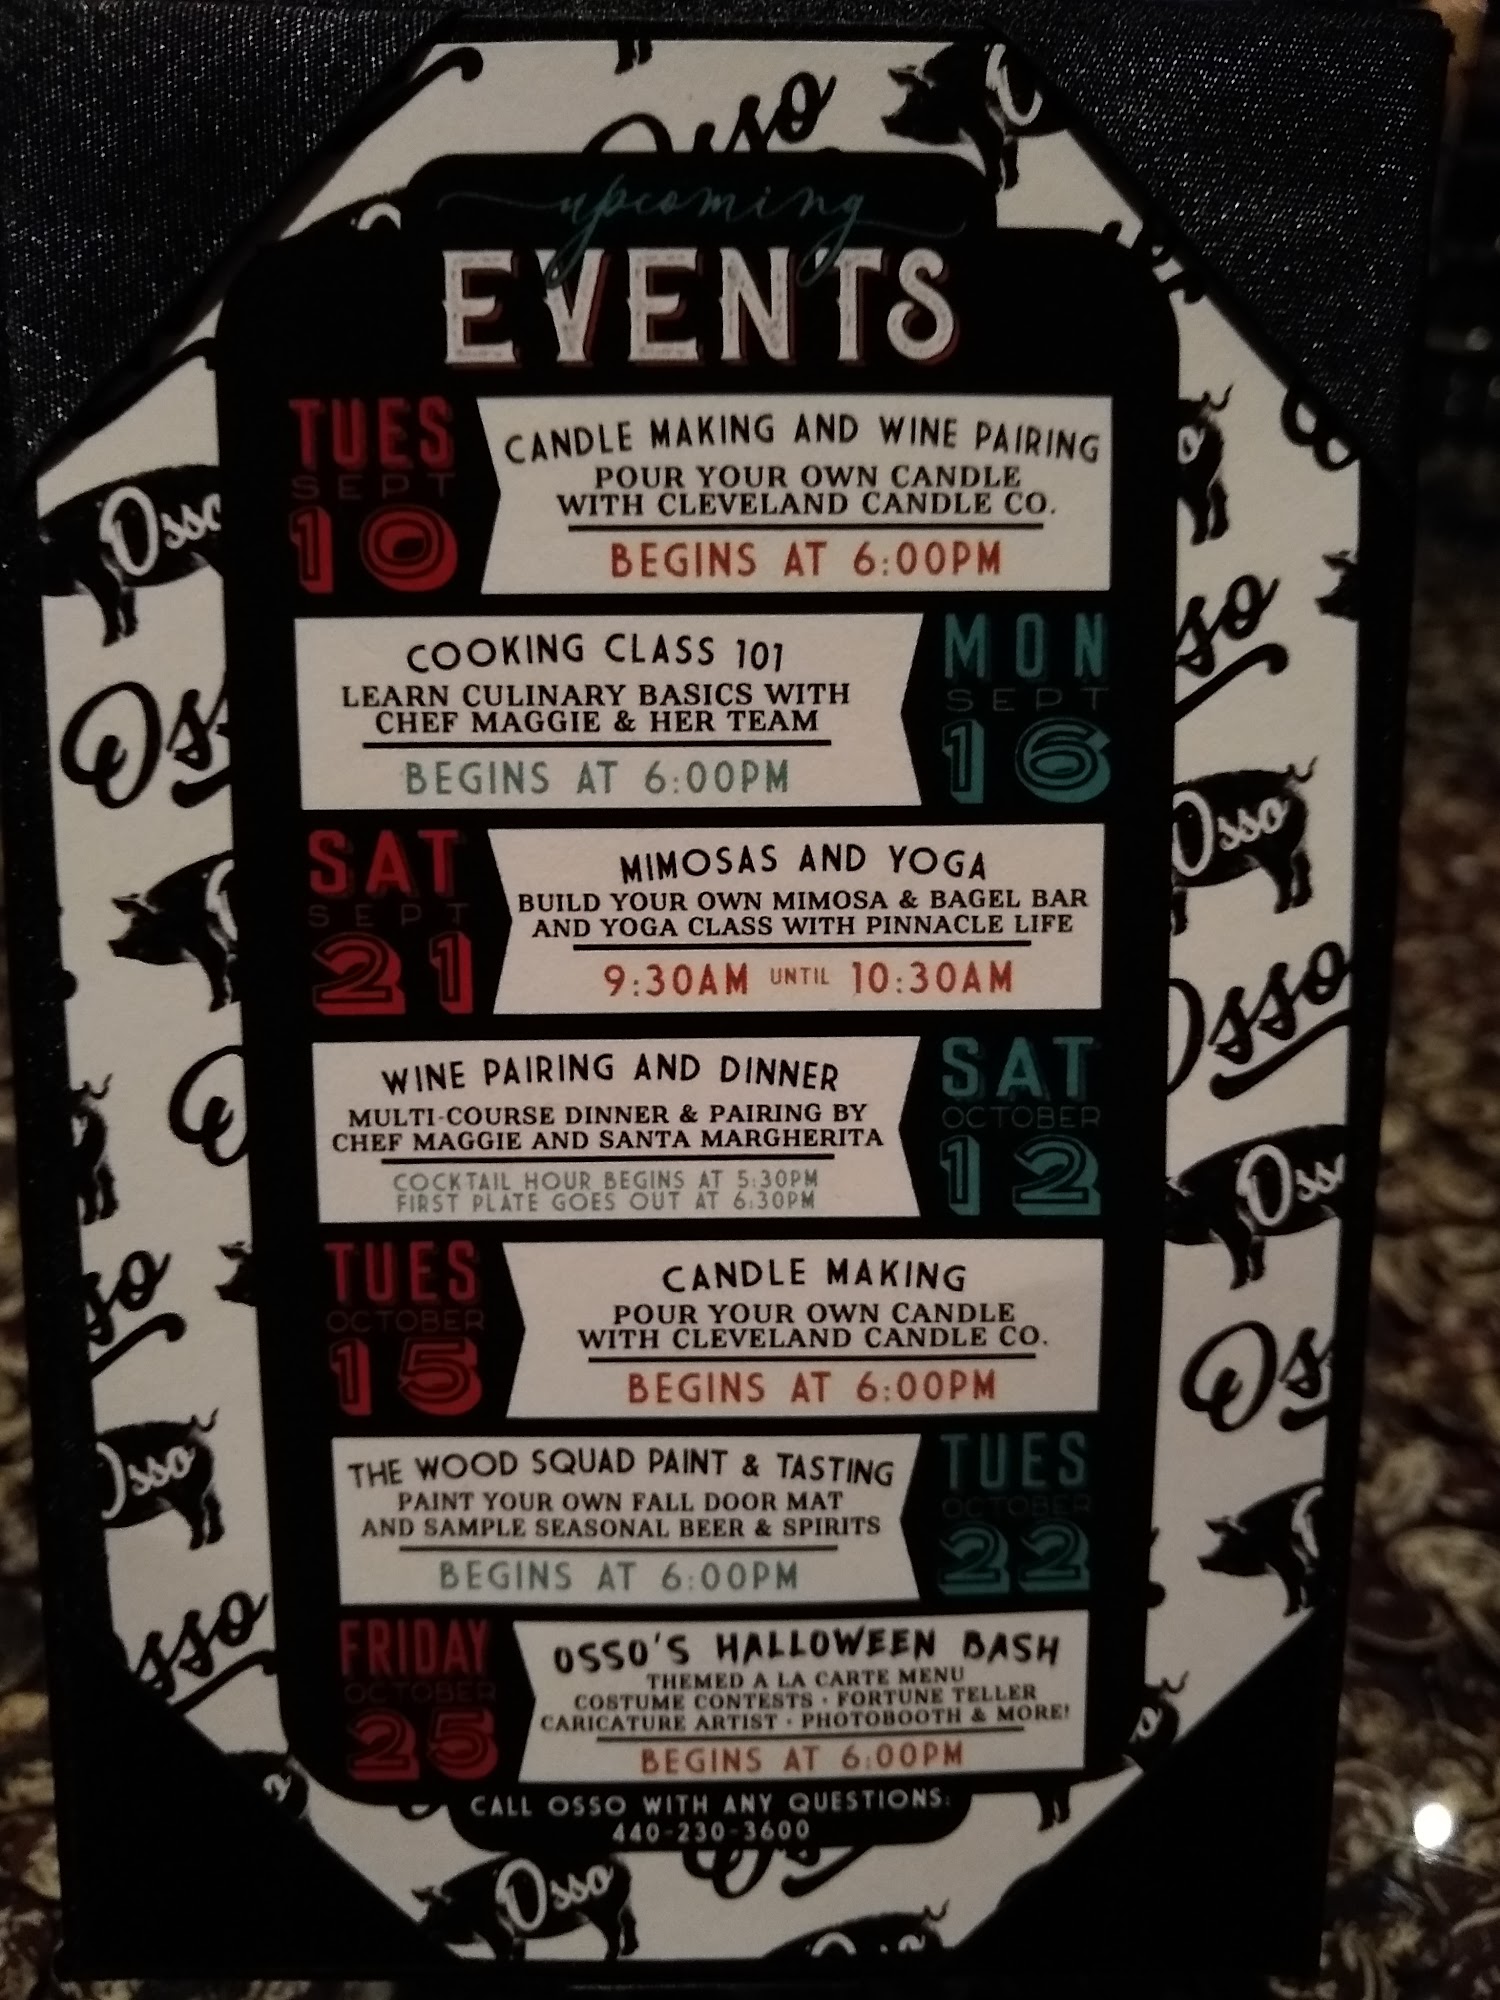 Osso
upcoming
EVENTS
TUES
SEPT
10
CANDLE MAKING AND WINE PAIRING
POUR YOUR OWN CANDLE
WITH CLEVELAND CANDLE CO.
BEGINS AT 6:00PM
COOKING CLASS 101
LEARN CULINARY BASICS WITH
CHEF MAGGIE & HER TEAM
BEGINS AT 6:00PM
MON
SEPT
16
SAT
SEPT
21
MIMOSAS AND YOGA
BUILD YOUR OWN MIMOSA & BAGEL BAR
AND YOGA CLASS WITH PINNACLE LIFE
9:30AM UNTIL 10:30AM
WINE PAIRING AND DINNER
MULTI-COURSE DINNER & PAIRING BY
CHEF MAGGIE AND SANTA MARGHERITA
COCKTAIL HOUR BEGINS AT 5:30PM
FIRST PLATE GOES OUT AT 6:30PM
SAT
OCTOBER
12
TUES
OCTOBER
15
CANDLE MAKING
POUR YOUR OWN CANDLE
WITH CLEVELAND CANDLE CO.
BEGINS AT 6:00PM
THE WOOD SQUAD PAINT & TASTING
PAINT YOUR OWN FALL DOOR MAT
AND SAMPLE SEASONAL BEER & SPIRITS
BEGINS AT 6:00PM
TUES
OCTOBER
22
FRIDAY
OCTOBER
25
OSSO'S HALLOWEEN BASH
THEMED A LA CARTE MENU
COSTUME CONTESTS · FORTUNE TELLER
CARICATURE ARTIST · PHOTOBOOTH & MORE!
BEGINS AT 6:00PM
CALL OSSO WITH ANY QUESTIONS:
440-230-3600
Osso
Osso
Osso
Osso
Osso
Osso